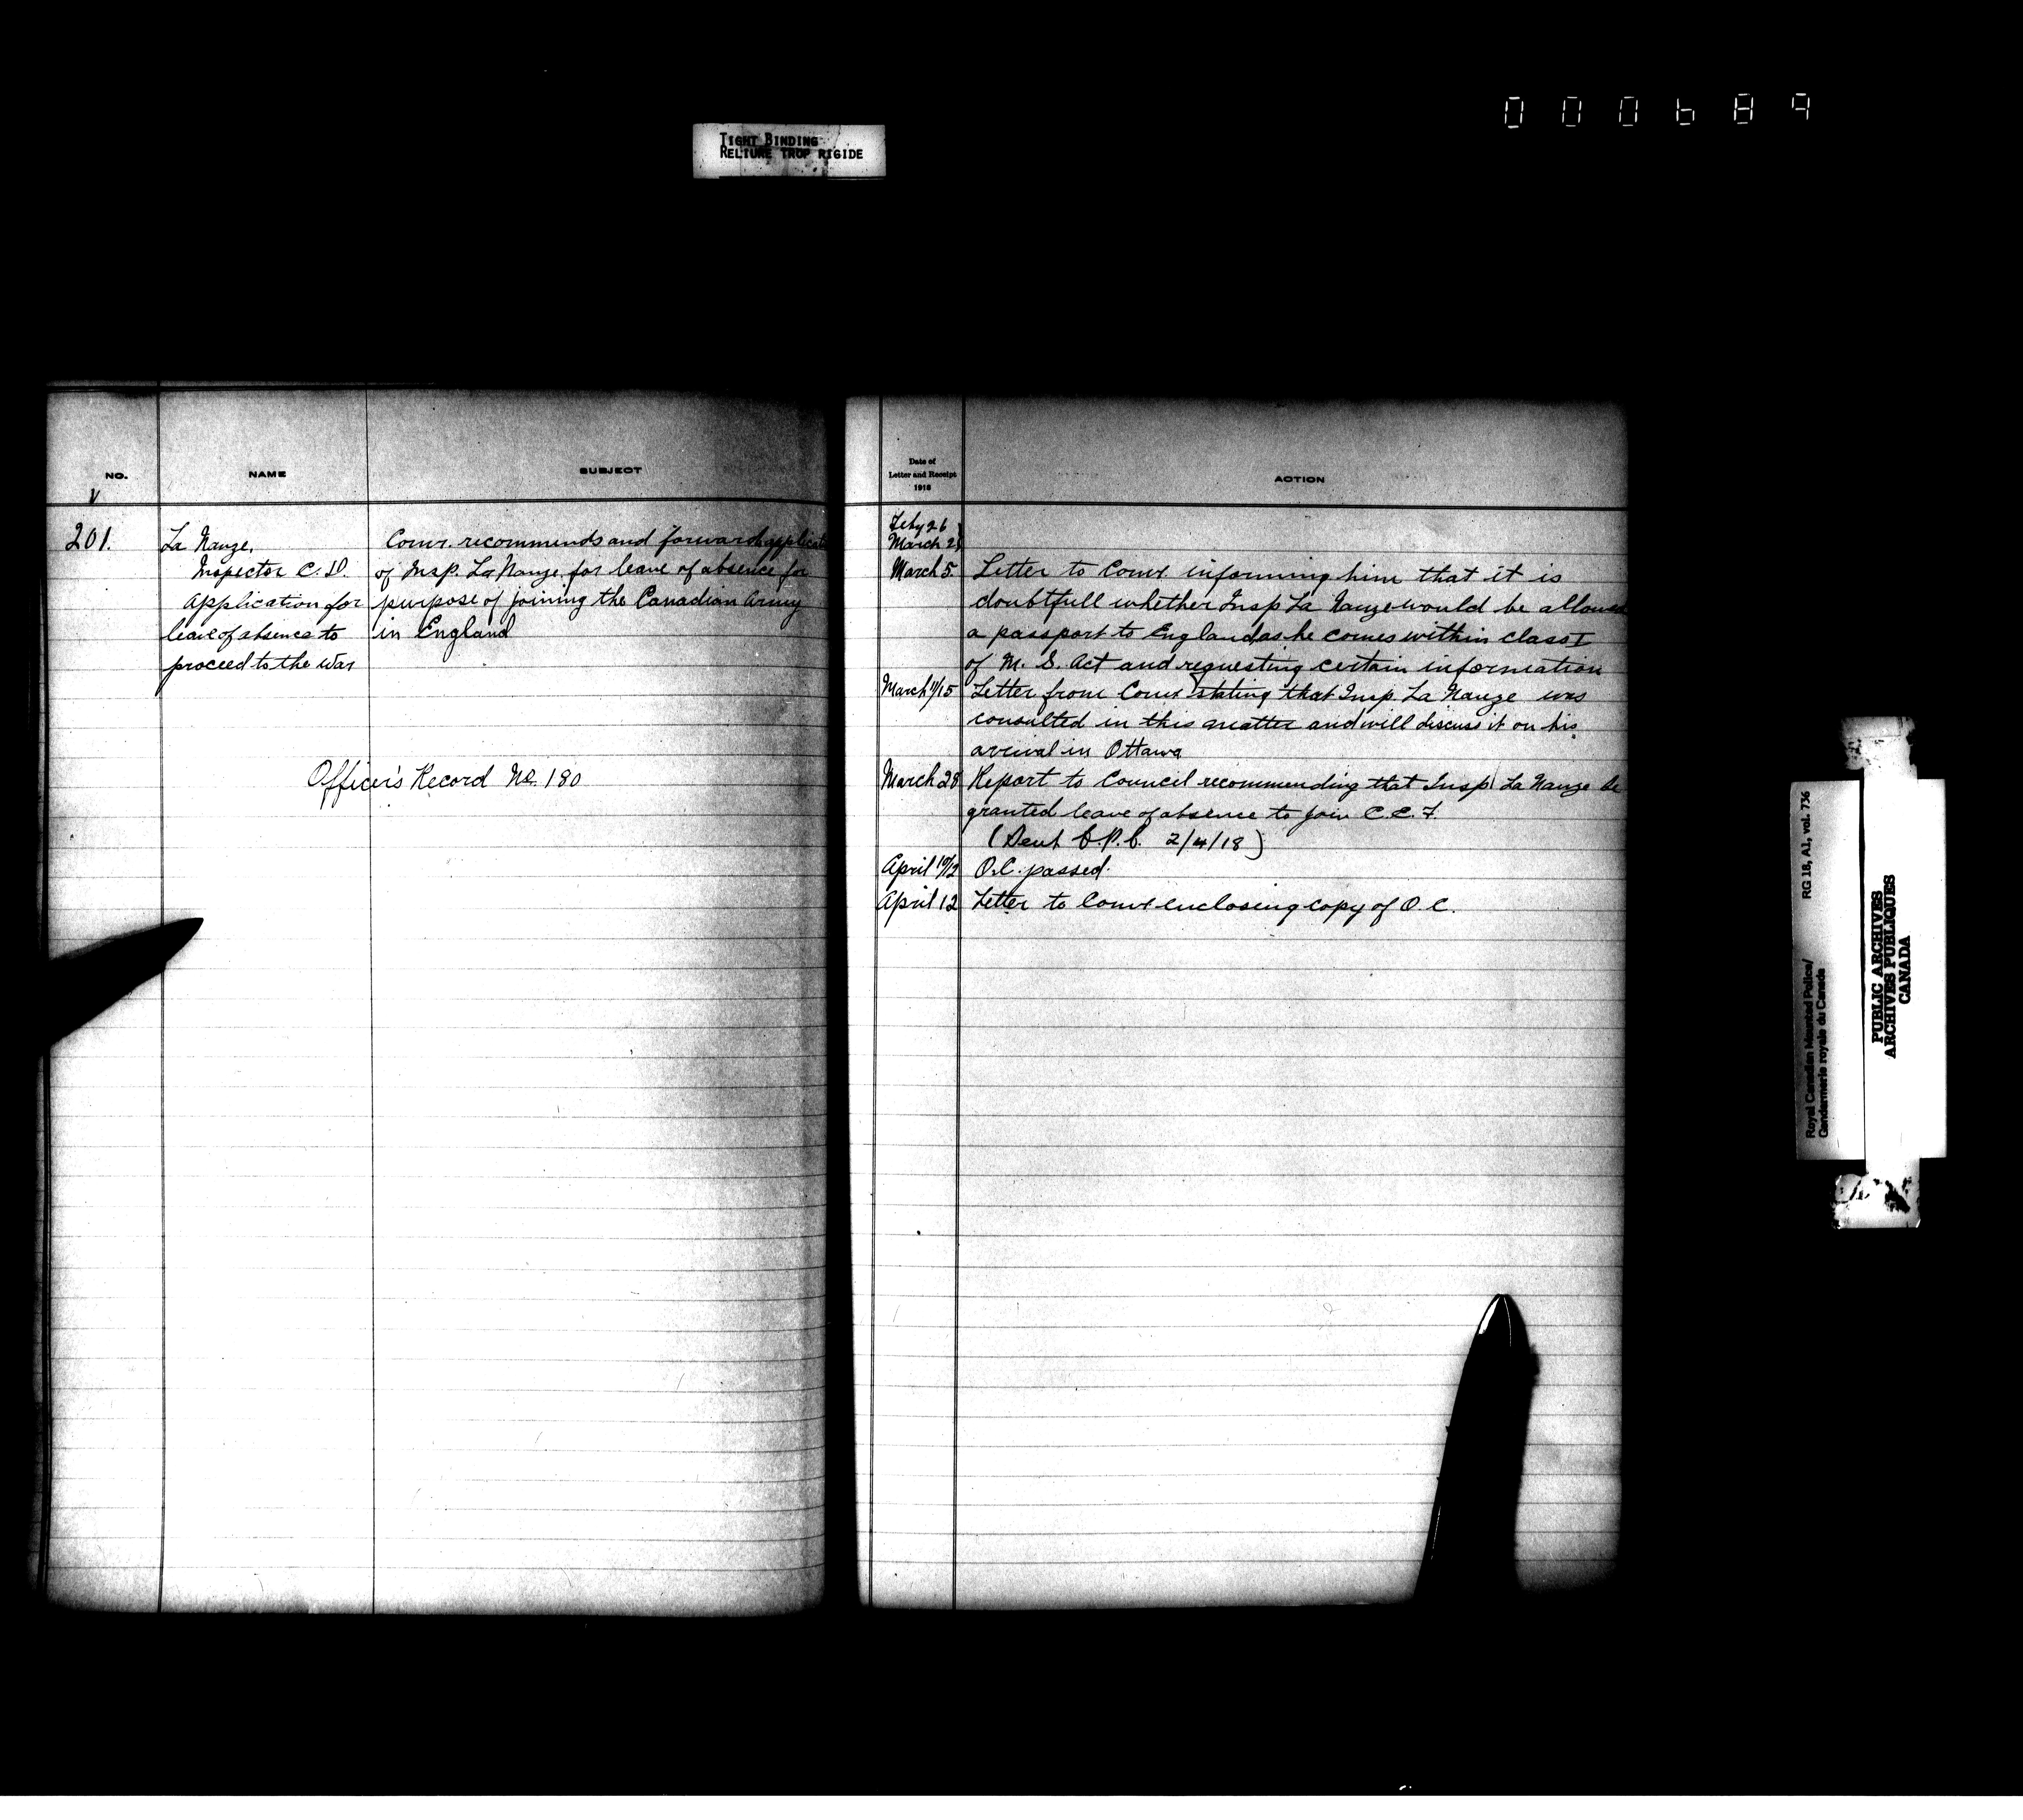 000689
TIGHT BINDING
RELIURE TROP RIGIDE
NO.
NAME
SUBJECT
201.
La Nauze,
Inspector C. D.
Application for
leave of absence to
proceed to the War
Comr. recommends and forwards applicat
of Insp. La Nauze for leave of absence for
purpose of joining the Canadian Army
in England
Officer's Record No. 180
Date of
Letter and Receipt
1918
ACTION
Feby 26
March 2
March 5. Letter to Comr. informing him that it is
doubtfull whether Insp La Nauze would be allowed
a passport to England as he comes within class I
of M. S. Act and requesting certain information
March 11/15 Letter from Comr stating that Insp. La Nauze was
consulted in this matter and will discuss it on his
arrival in Ottawa
March 28 Report to Council recommending that Insp La Nauze be
granted leave of absence to join C.E.F.
(Sent C.P.C. 2/4/18)
April 10/12 O.C. passed.
April 12 Letter to Comr enclosing copy of O.C.
RG 18, A1, vol. 736
Royal Canadian Mounted Police/
Gendarmerie royale du Canada
PUBLIC ARCHIVES
ARCHIVES PUBLIQUES
CANADA